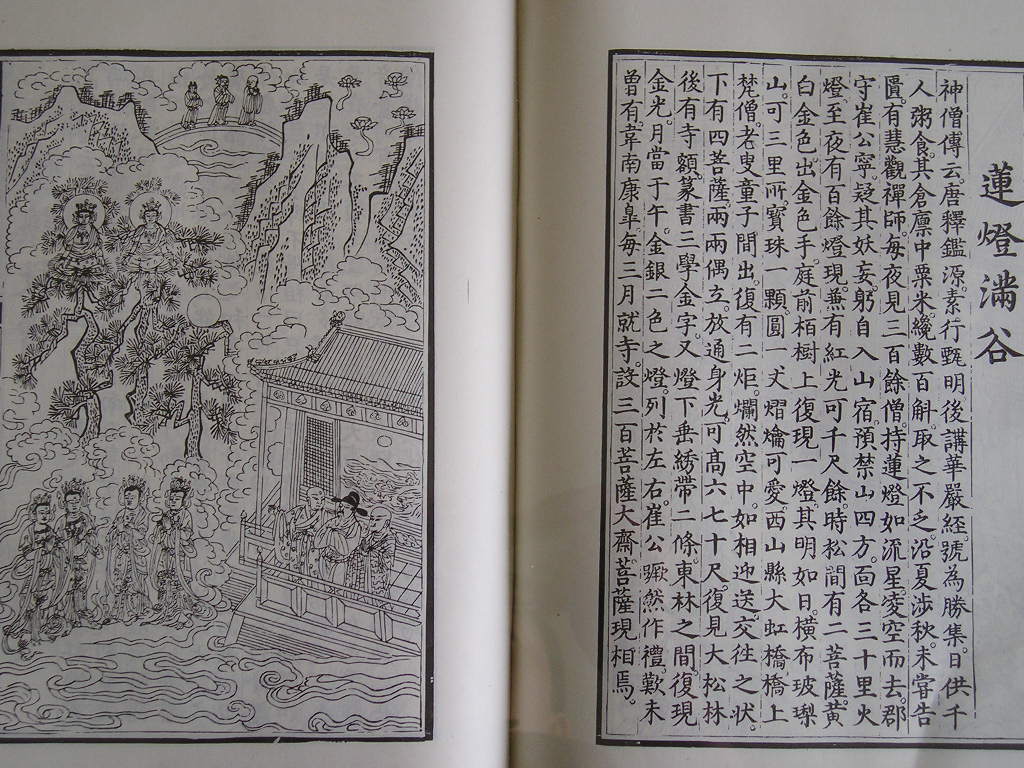 蓮燈滿谷
神僧傳云唐釋鑑源素行甄明後講華嚴經號為勝集日供千
人粥食其倉廩中粟米纔數百斛取之不乏沿夏涉秋未嘗告
匱有慧觀禪師每夜見三百餘僧持蓮燈如流星凌空而去郡
守崔公寧疑其妖妄躬自入山宿預禁山四方面各三十里火
燈至夜有百餘燈現兼有紅光可千尺餘時松間有二菩薩黃
白金色出金色手庭前栢樹上復現一燈其明如日橫布玻瓈
山可三里所寶珠一顆圓一丈熠爚可愛西山縣大虹橋橋上
梵僧老叟童子間出復有二炬爛然空中如相迎送交往之狀
下有四菩薩兩兩偶立放通身光可高六七十尺復見大松林
後有寺額篆書三學金字又燈下垂綉帶二條東林之間復現
金光月當于午金銀二色之燈列於左右崔公蹶然作禮歎未
曾有韋南康皐每三月就寺設三百菩薩大齋菩薩現相焉